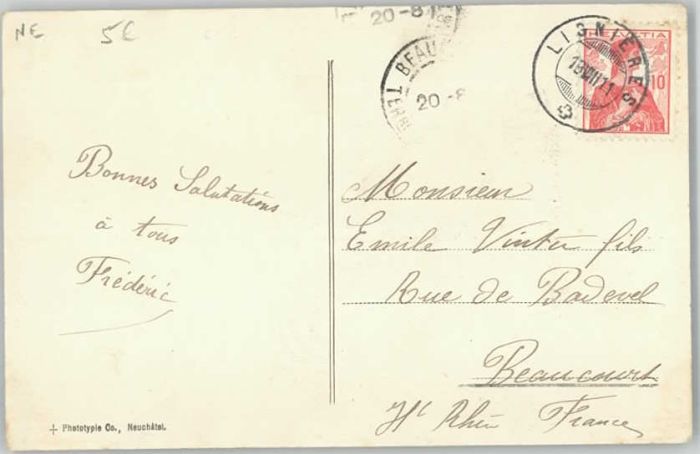 NE
5€
20-8
BEAU
TERRI
20-8
LIGNIÈRES
19 VIII 11
HELVETIA
10
Bonnes Salutations
à tous
Frédéric
Monsieur
Emile Vinter fils
Rue de Badevel
Beaucourt
Ht Rhin France
Phototypie Co., Neuchâtel.